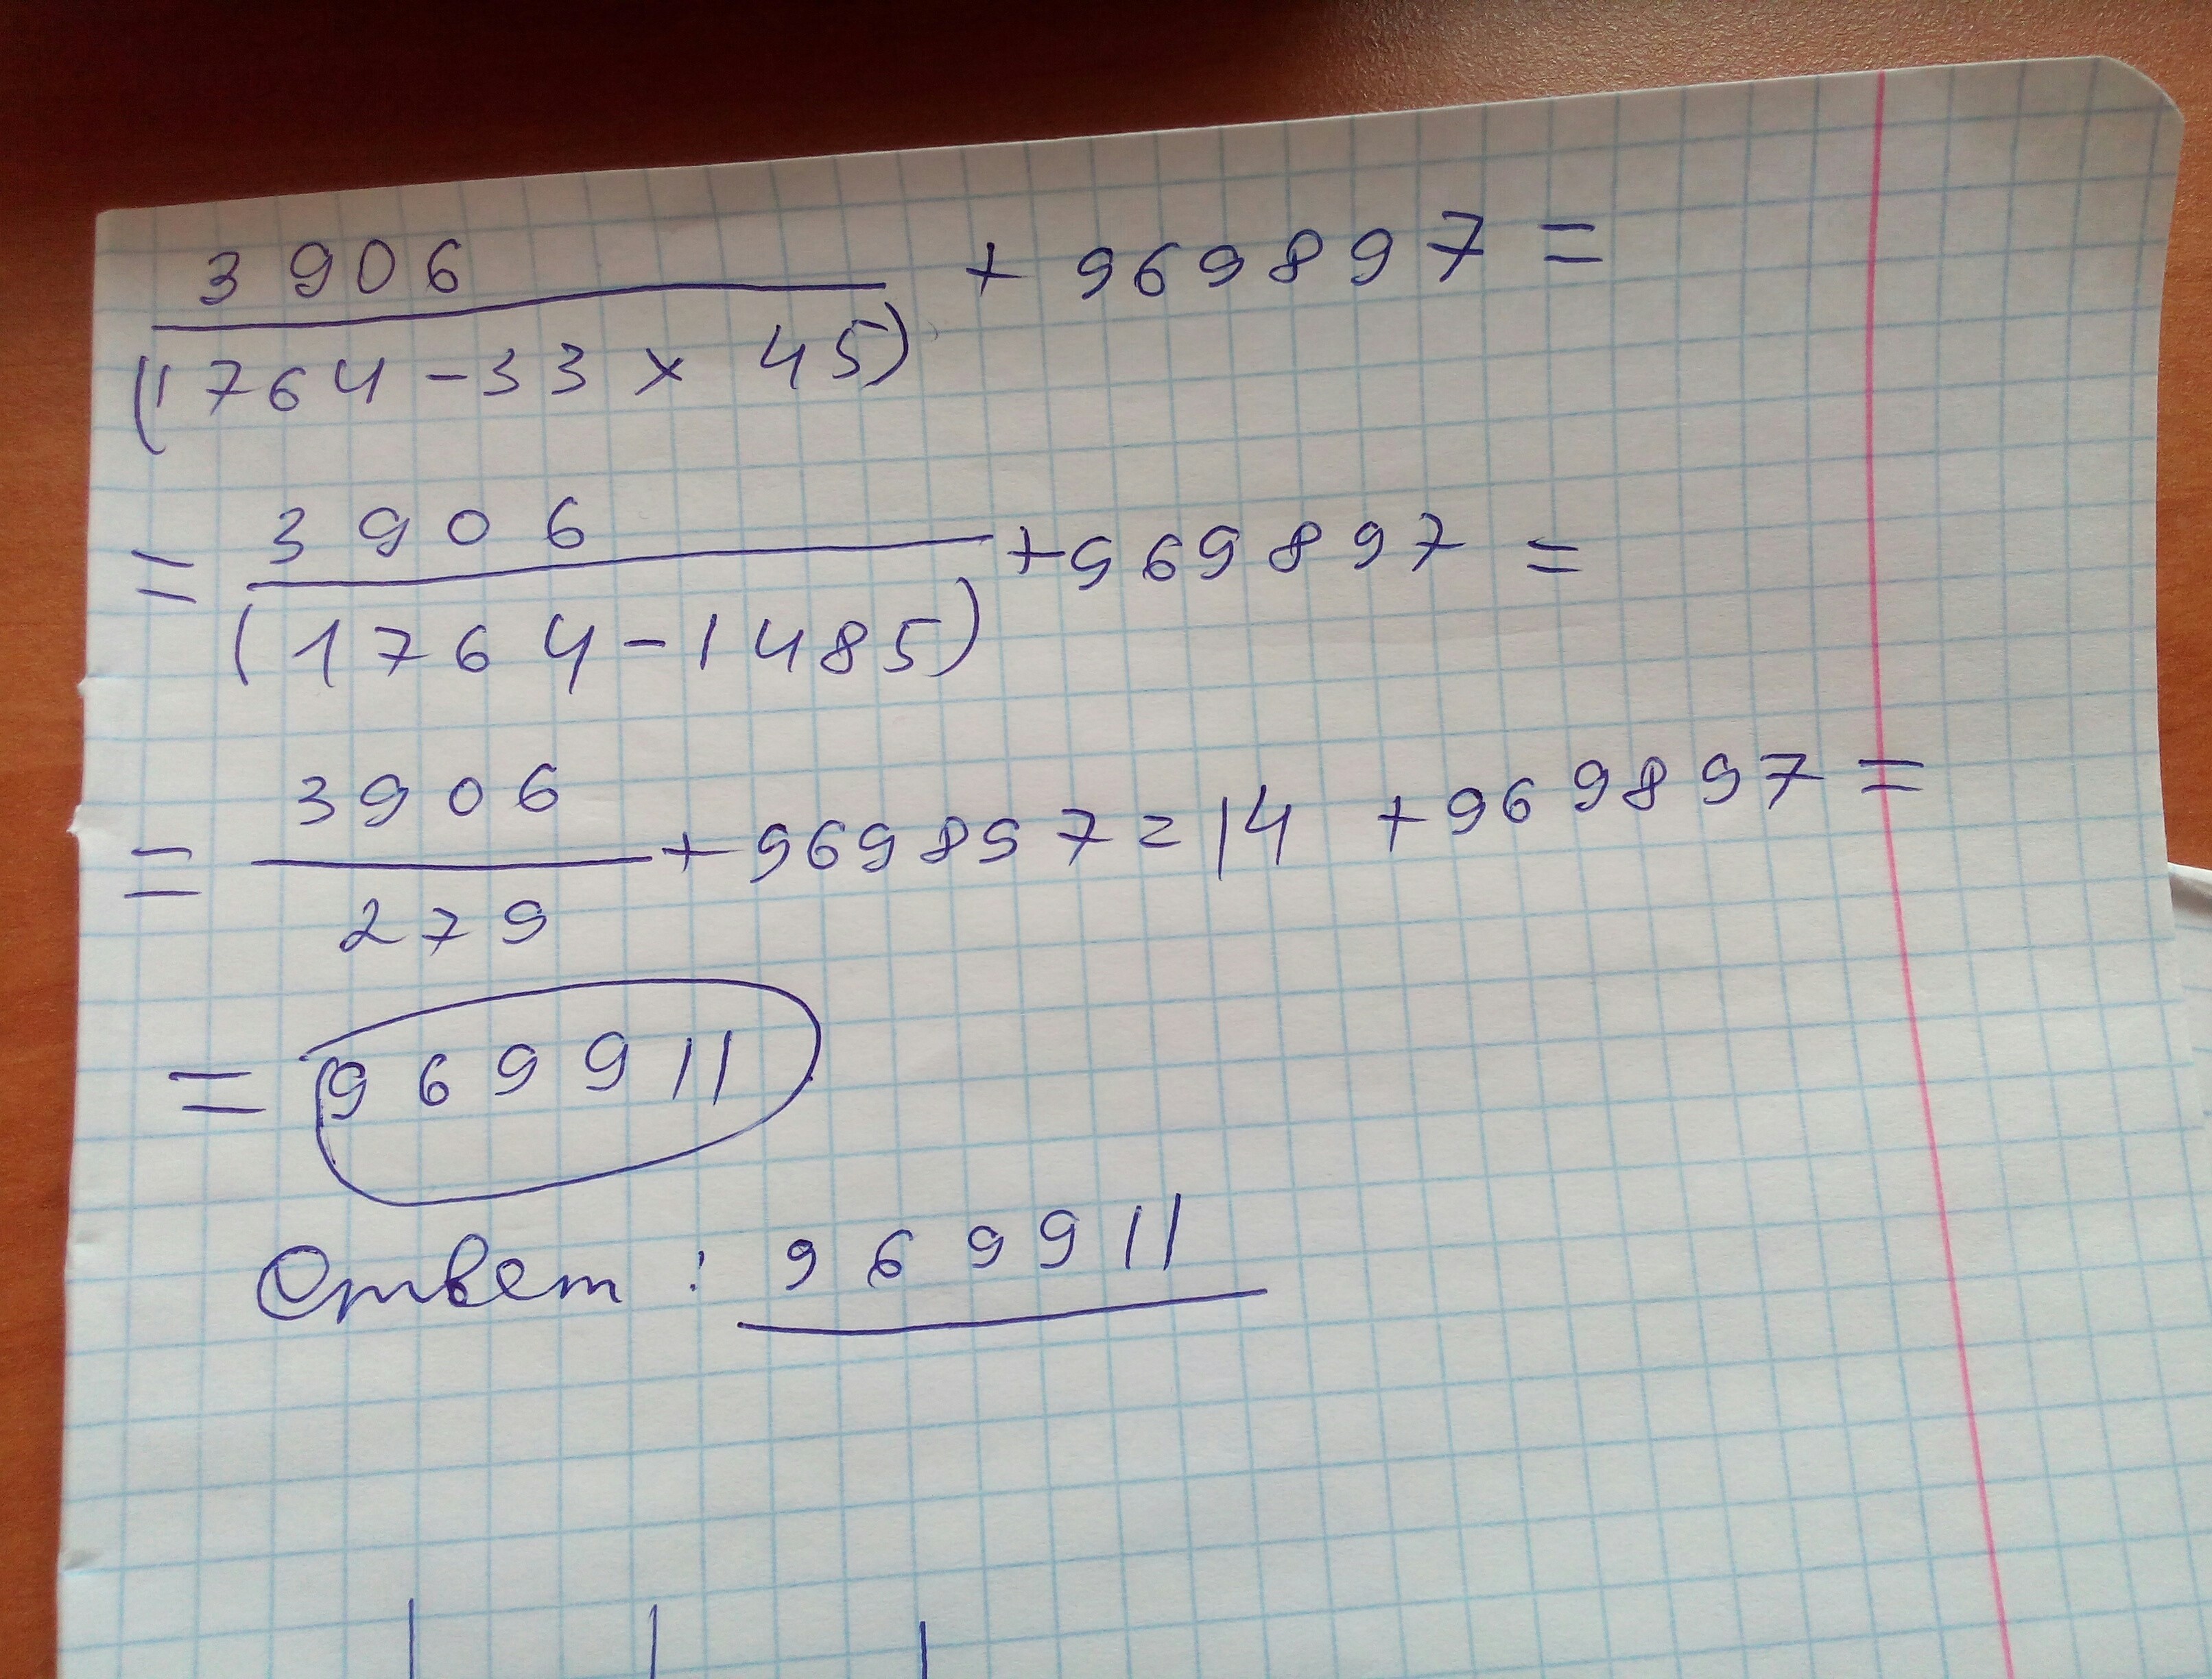 3906 / (1764 - 33 × 45) + 969897 =
= 3906 / (1764 - 1485) + 969897 =
= 3906 / 279 + 969897 = 14 + 969897 =
= 969911
Ответ : 969911